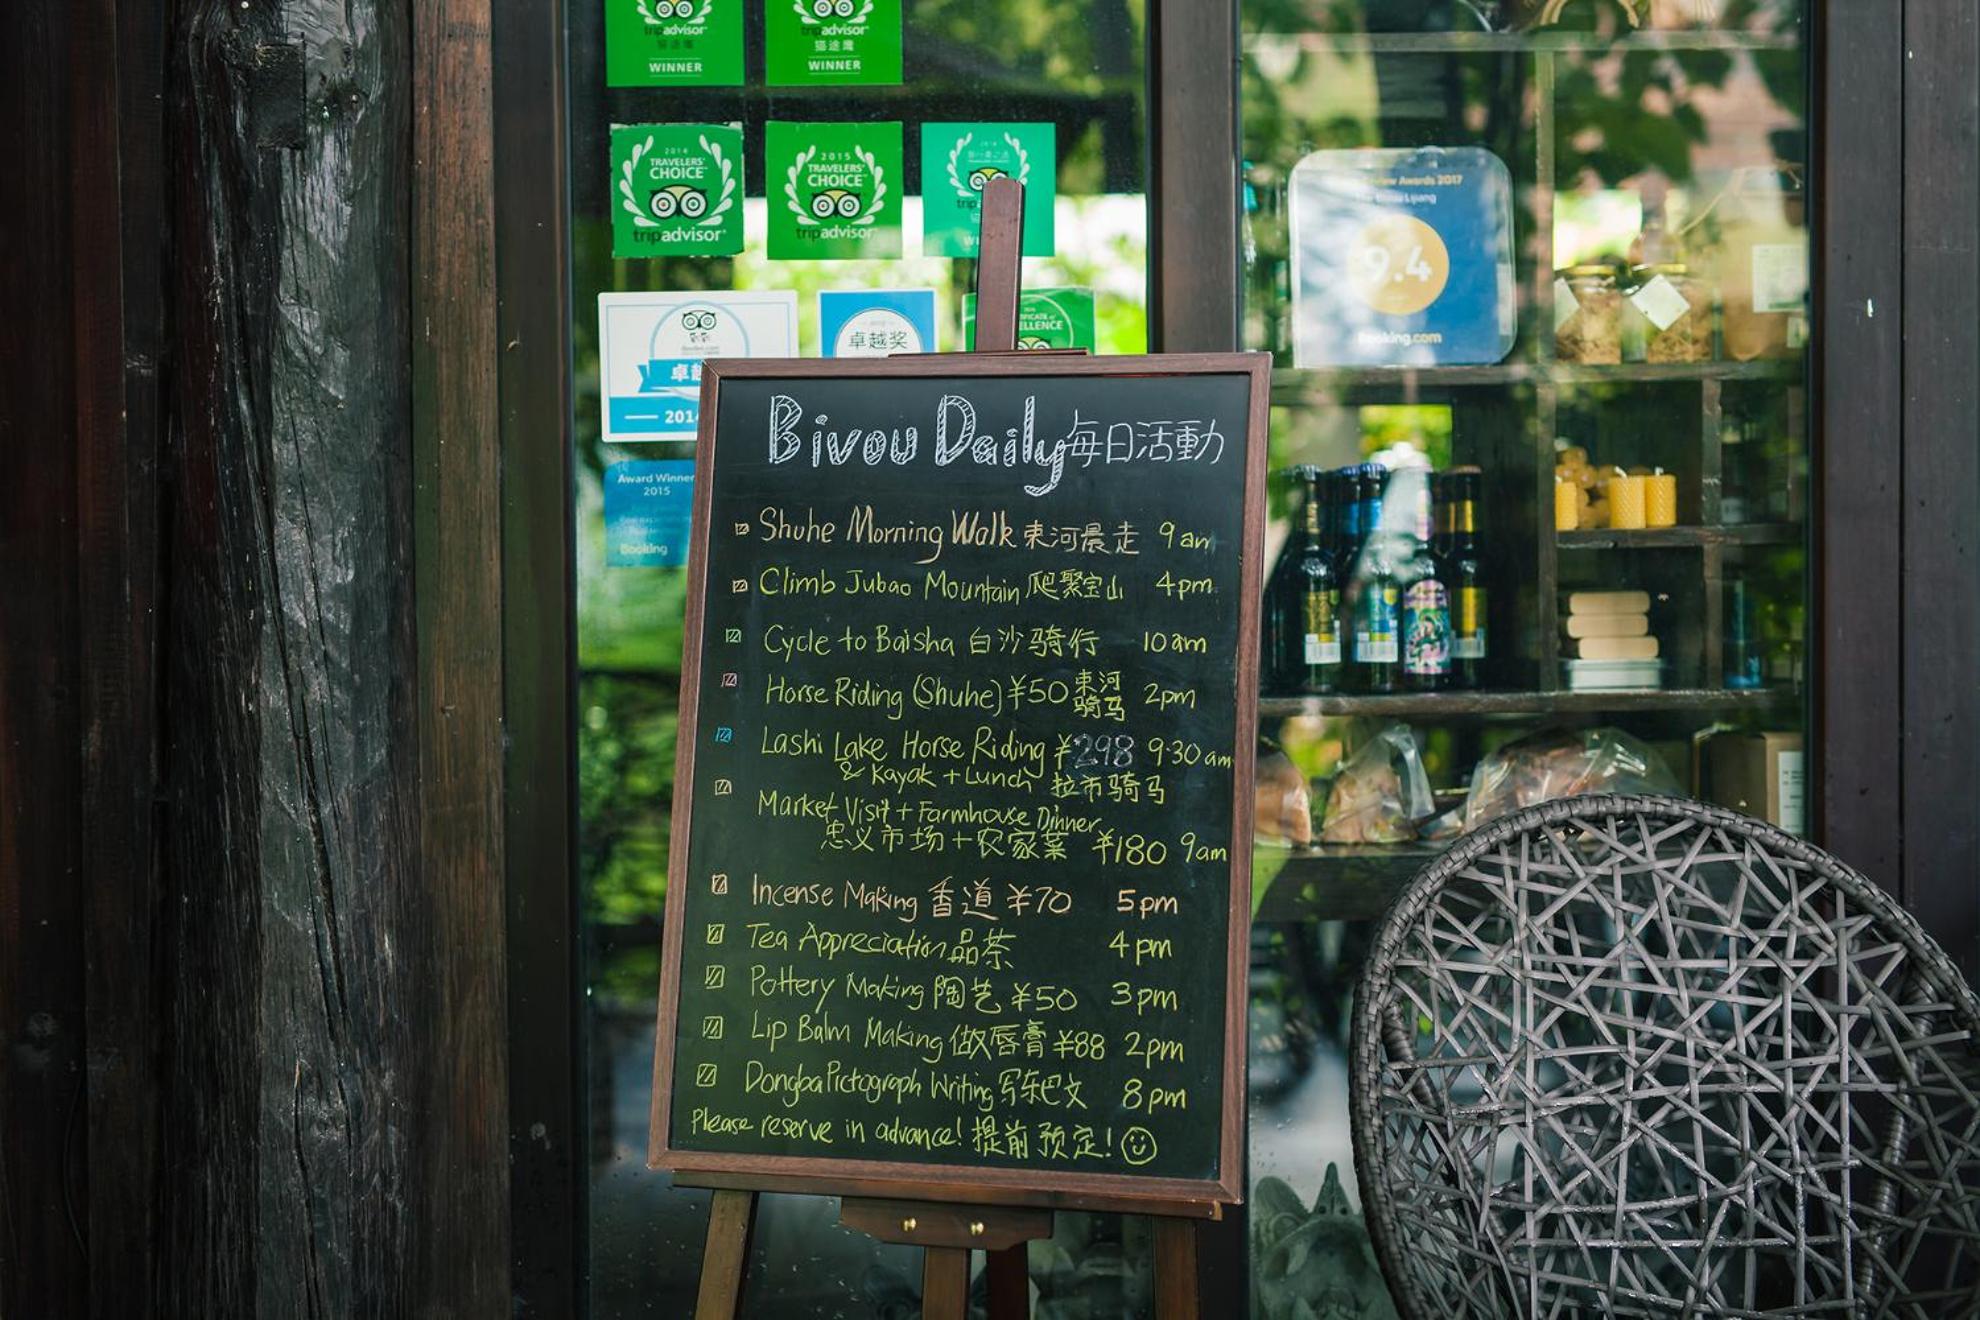 tripadvisor
猫途鹰
WINNER
tripadvisor
猫途鹰
WINNER
2014
TRAVELERS'
CHOICE
tripadvisor
2015
TRAVELERS'
CHOICE
tripadvisor
卓越奖
ELLENCE
2014
Award Winner
2015
Booking
Awards 2017
Lijiang
9.4
Booking.com
Bivou Daily 每日活動
Shuhe Morning Walk 束河晨走 9am
Climb Jubao Mountain 爬聚宝山 4pm
Cycle to Baisha 白沙骑行 10am
Horse Riding (Shuhe) ¥50 束河骑马 2pm
Lashi Lake Horse Riding ¥298 9:30am
& Kayak + Lunch 拉市骑马
Market Visit + Farmhouse Dinner
忠义市场+农家菜 ¥180 9am
Incense Making 香道 ¥70 5pm
Tea Appreciation 品茶 4pm
Pottery Making 陶艺 ¥50 3pm
Lip Balm Making 做唇膏 ¥88 2pm
Dongba Pictograph Writing 写东巴文 8pm
Please reserve in advance! 提前预定!